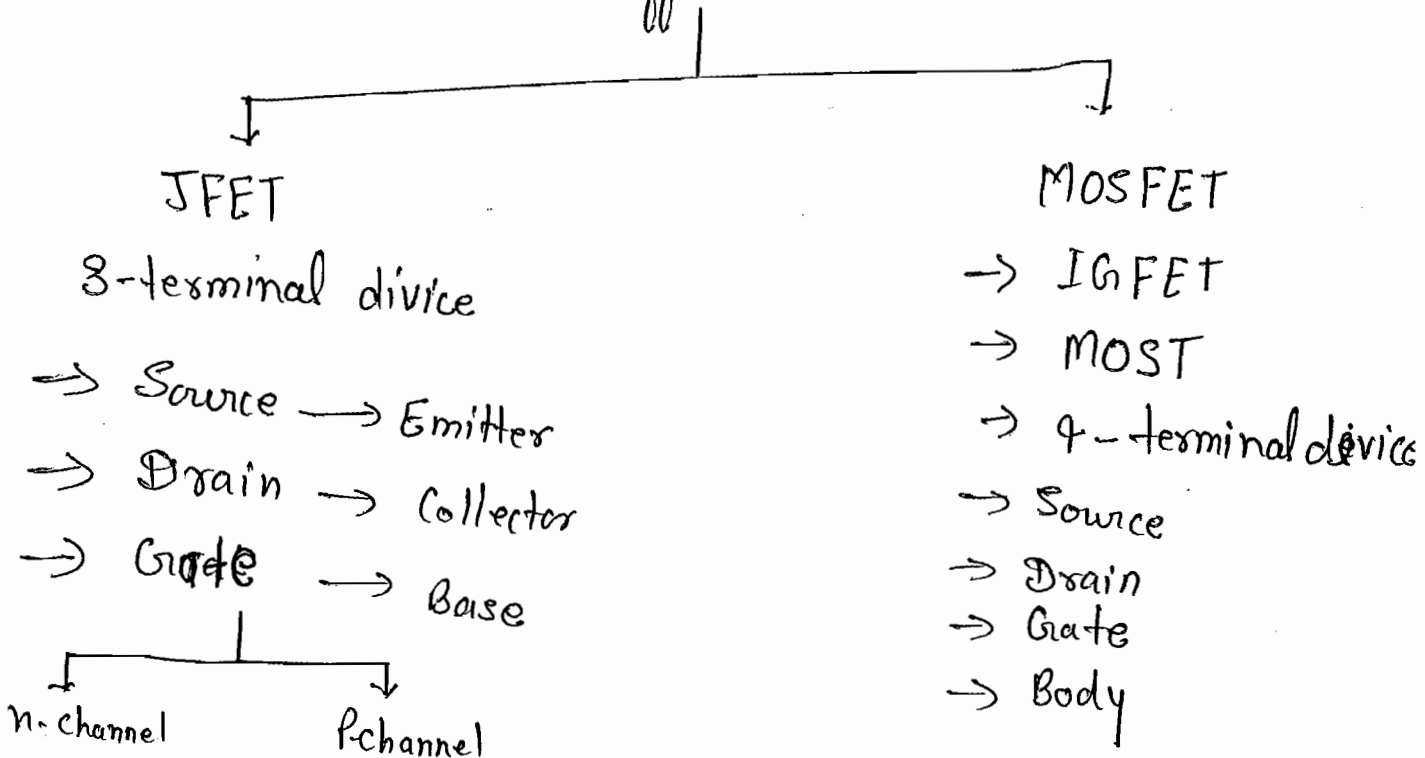 JFET
3-terminal divice
→ Source → Emitter
→ Drain → Collector
→ Gate → Base
n-channel
P-channel
MOSFET
→ IGFET
→ MOST
→ 4-terminal device
→ Source
→ Drain
→ Gate
→ Body